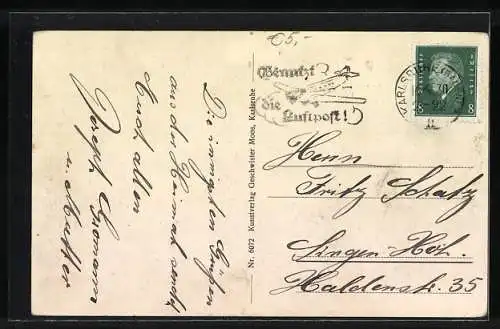 €5,-
Benutzt
die
Luftpost!
KARLSRUHE
8 8
Die innigsten Grüßen
aus der Heimat sendet
Euch allen
Joseph
u. Mutter
Nr. 6072 Kunstverlag Geschwister Moos, Karlsruhe
Herrn
Fritz Schatz
Singen-Hoh.
Haldenstr. 35